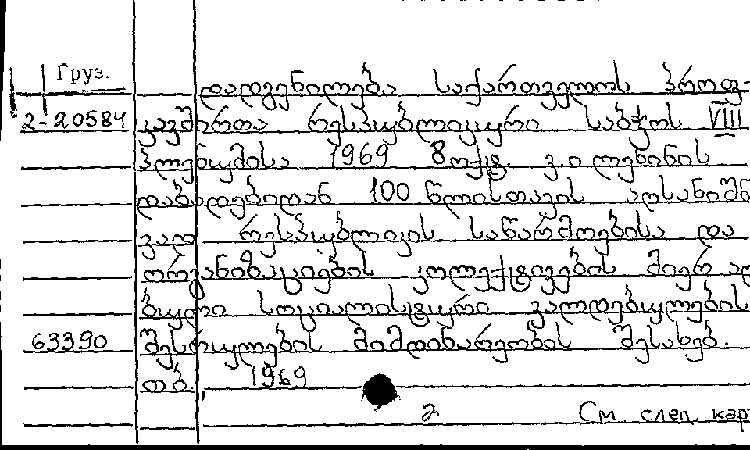 Груз.
დადგენილება საქართველოს პროფ-
2-20584 კავშირთა რესპუბლიკური საბჭოს VIII
პლენუმისა 1969 8 ოქტ. ვ.ი ლენინის
დაბადებიდან 100 წლისთავის აღსანიშნ
ვად რესპუბლიკის საწარმოებისა და
ორგანიზაციების კოლექტივების მიერ აღ
ბული სოციალისტური ვალდებულების
63390 შესრულების მიმდინარეობის შესახებ.
თბ., 1969
2 См. след. кар